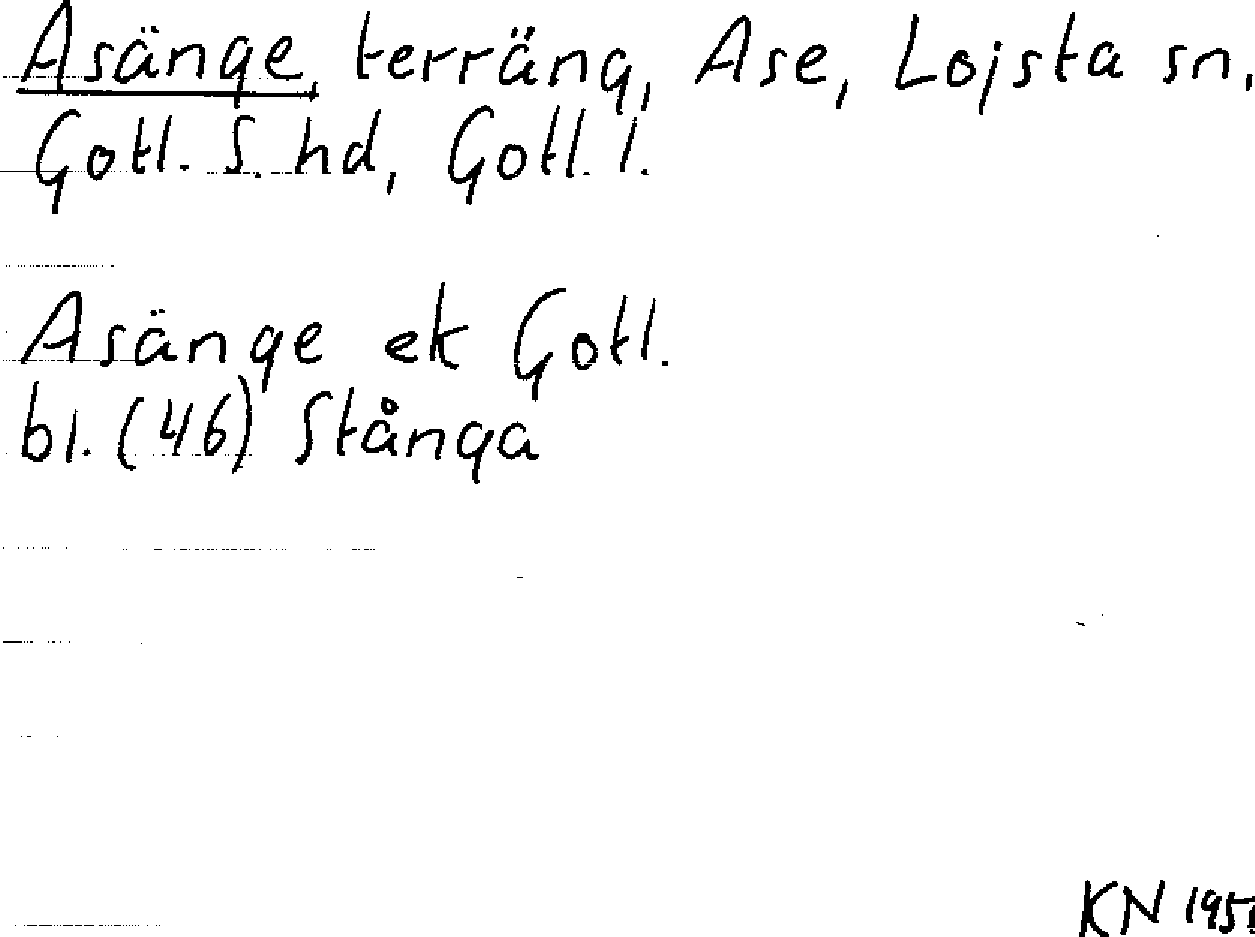 Asänge, terräng, Ase, Lojsta sn,
Gotl. S. hd, Gotl. l.
Asänge ek Gotl.
bl. (46) Stånga
KN 1951